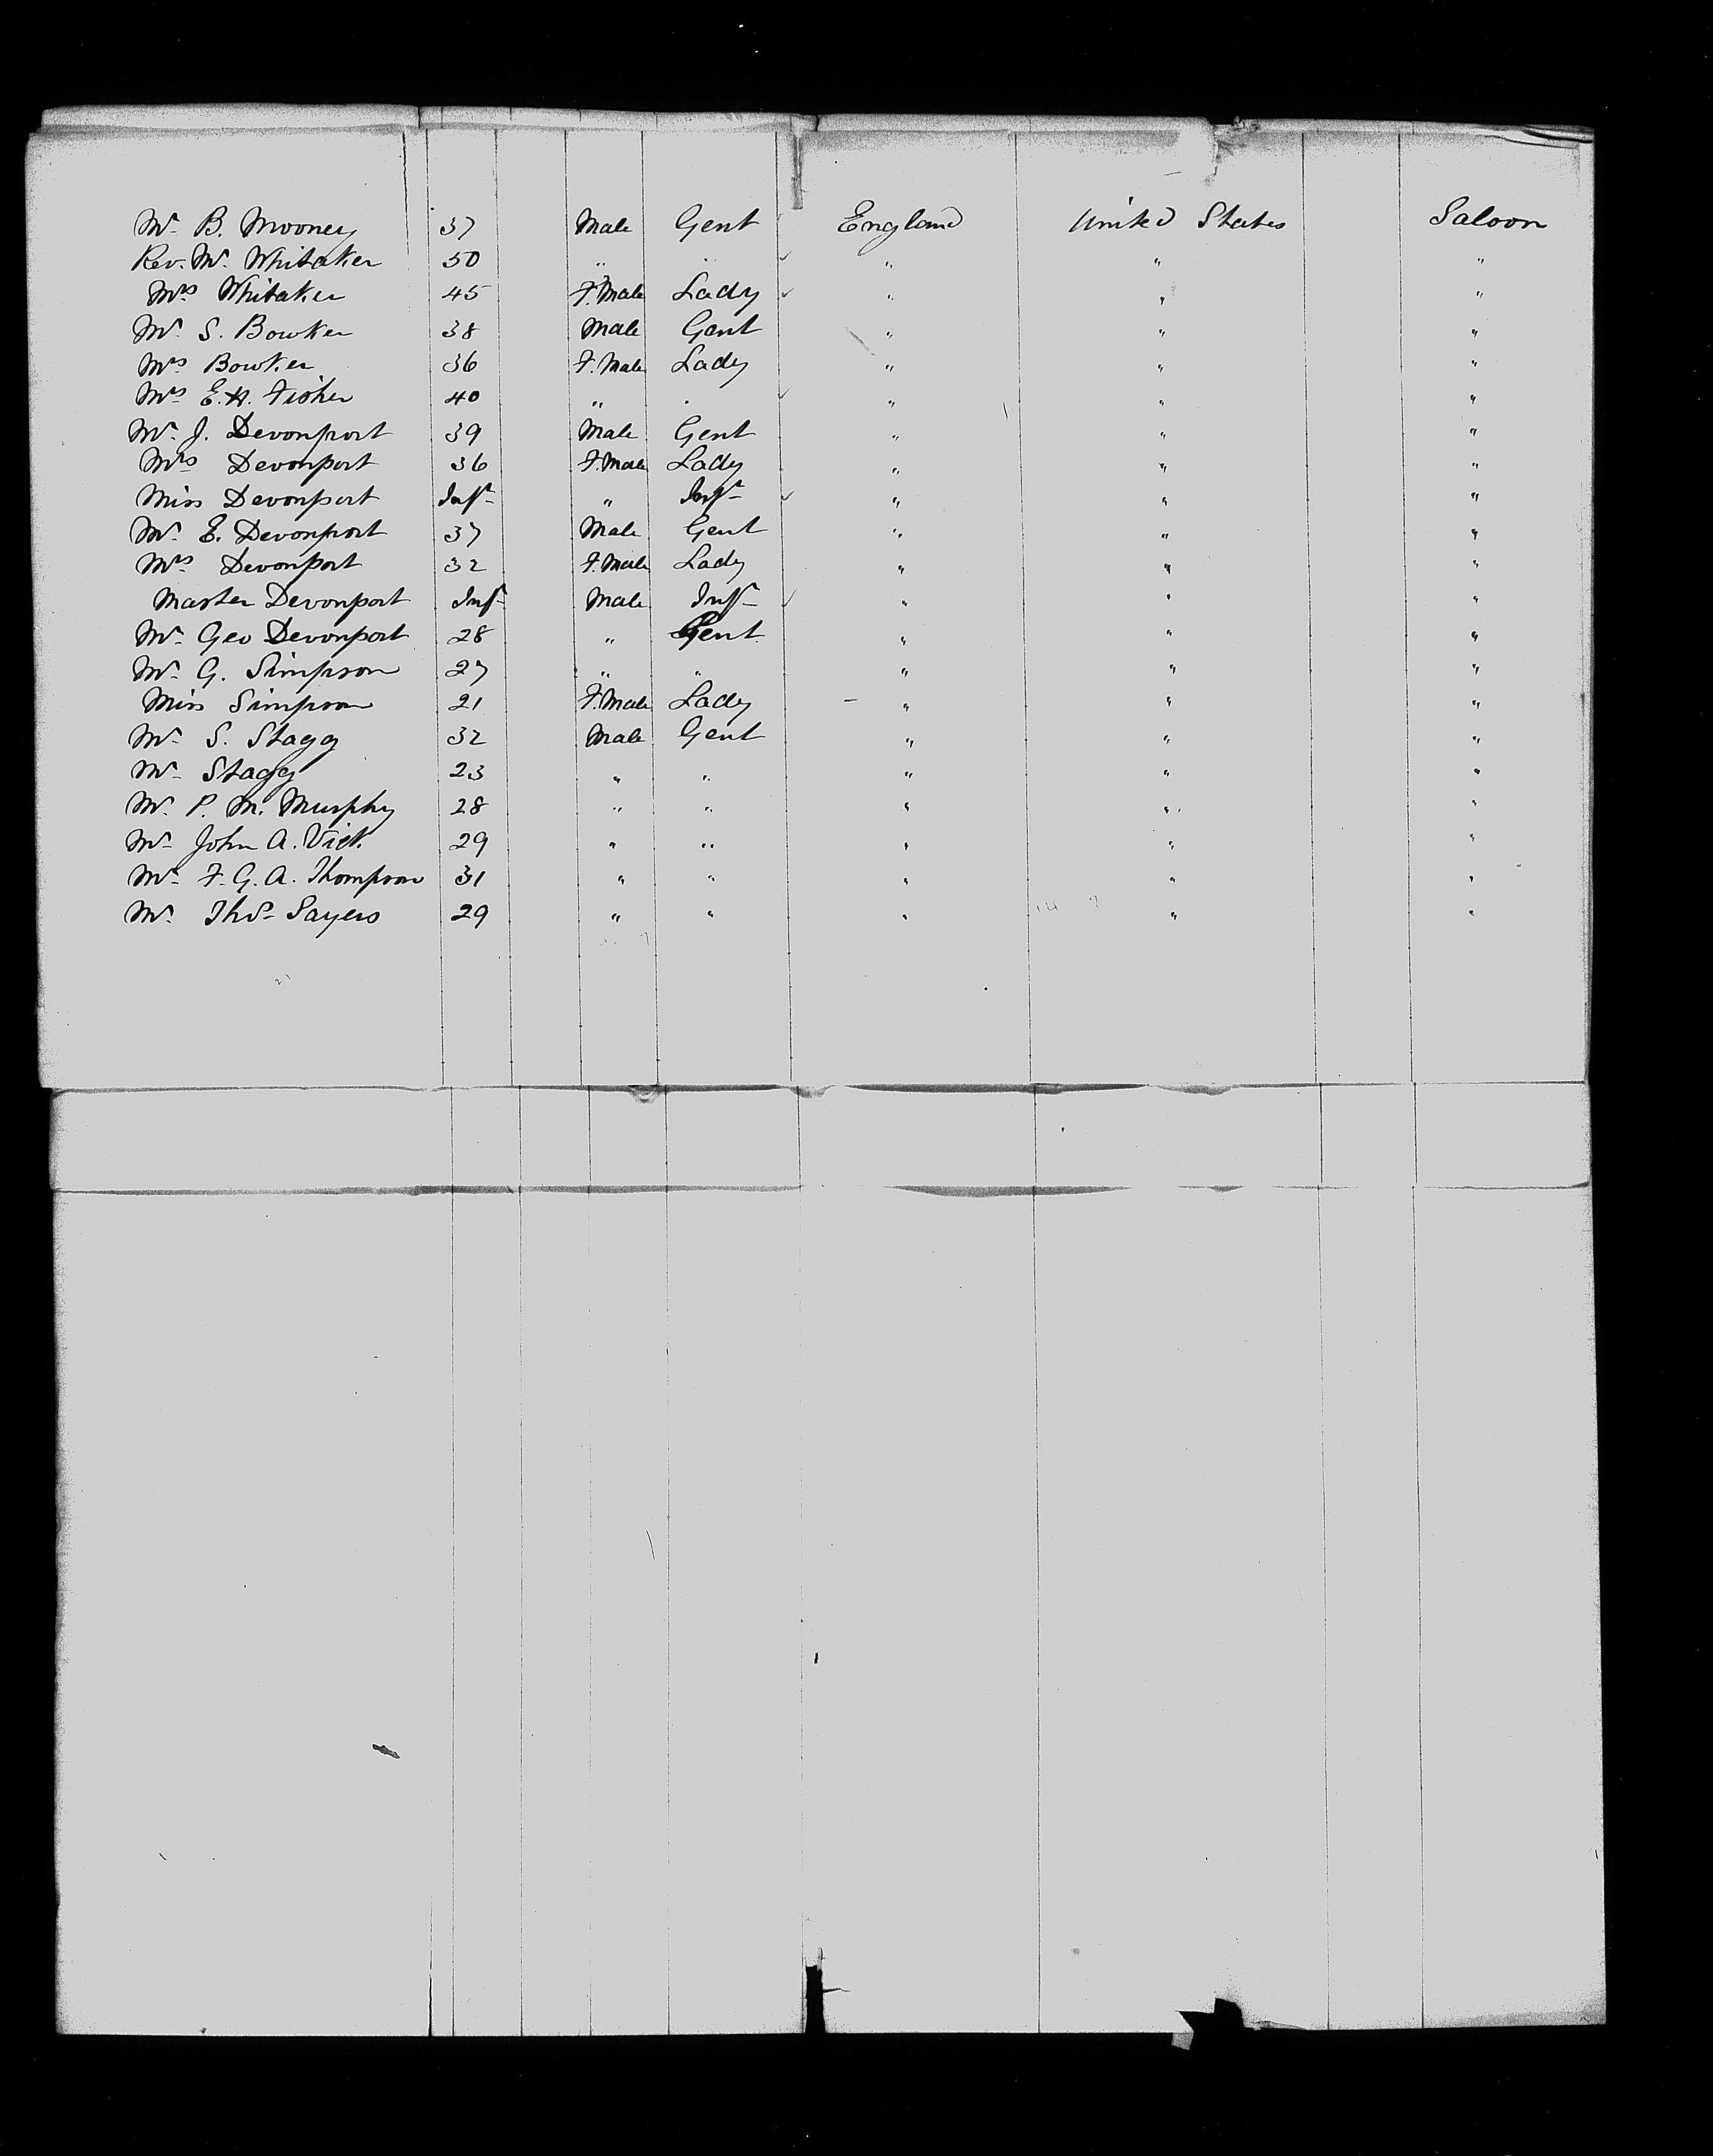 Mr. B. Mooney 37 Male Gent England United States Saloon
Rev. Mr. Whitaker 50 " " " " "
Mrs Whitaker 45 F.Male Lady " " "
Mr. S. Bowker 38 Male Gent " " "
Mrs Bowker 36 F.Male Lady " " "
Mrs E.H. Fisher 40 " " " " "
Mr. J. Devonport 39 Male Gent " " "
Mrs Devonport 36 F.Male Lady " " "
Miss Devonport Inft " Inft " " "
Mr. E. Devonport 37 Male Gent " " "
Mrs Devonport 32 F.Male Lady " " "
Master Devonport Inft Male Inft " " "
Mr. Geo Devonport 28 " Gent " " "
Mr. G. Simpson 27 " " " " "
Miss Simpson 21 F.Male Lady " " "
Mr. S. Stagg 32 Male Gent " " "
Mr. Stagg 23 " " " " "
Mr. P. M. Murphy 28 " " " " "
Mr. John A. 29 " " " " "
Mr. F. G. A. Thompson 31 " " " " "
Mr. Thos. Sayers 29 " " " " "